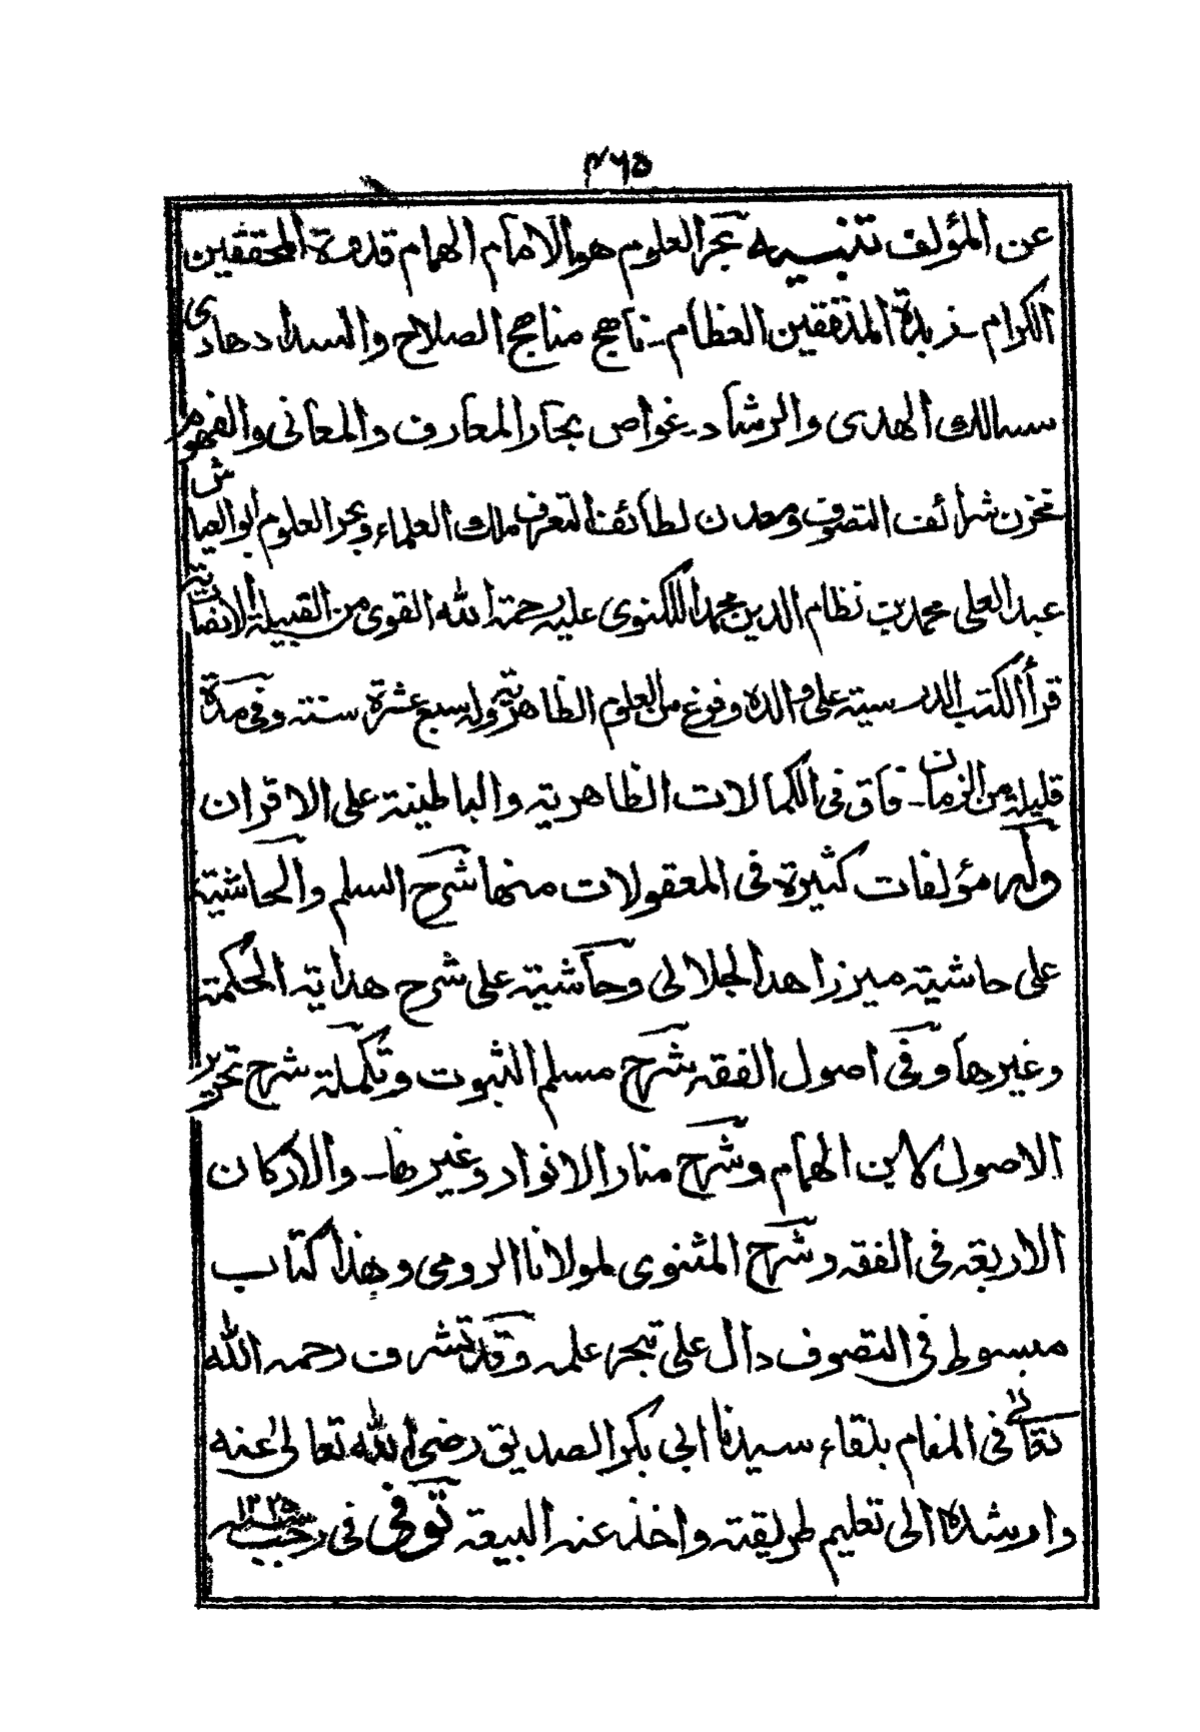 ۴۶۵
عن المؤلف تنبيه بحر العلوم هو الامام الهمام قدوة المحققين
الكرام ـ زبدة المدققين العظام ـ ناهج مناهج الصلاح والسداد هادى
سالك الهدى والرشاد ـ غواص بحار المعارف والمعانى والفهوم
مخزن شرائف التصوف ومعدن لطائف التعرف ملك العلماء وبحر العلوم ابو العياش
عبد العلى محمد بن نظام الدين محمد اللكنوى عليه رحمة الله القوى من القبيلة الانصارية
قرأ الكتب الدرسية على والده وفرغ من العلوم الظاهرية وله سبع عشرة سنة وفى مدة
قليلة من الزمان ـ فاق فى الكمالات الظاهرية والباطينة على الاقران
وله مؤلفات كثيرة فى المعقولات منها شرح السلم والحاشية
على حاشية ميرزا هد الجلالى وحاشية على شرح هداية الحكمة
وغيرها وفى اصول الفقه شرح مسلم الثبوت وتكملة شرح تحرير
الاصول لابن الهمام وشرح منار الانوار وغيرها ـ والاركان
الاربعة فى الفقه وشرح المثنوى لمولانا الرومى وهذا كتاب
مبسوط فى التصوف دال على تبحر علمه وقد تشرف رحمه الله
تعالى فى المنام بلقاء سيدنا ابى بكر الصديق رضى الله تعالى عنه
وارشده الى تعليم طريقته واخذ عنه البيعة توفى فى رجب سنه ۱۲۲۵